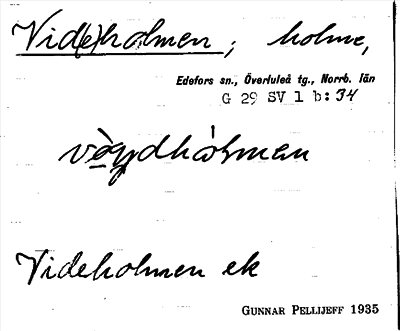 Vid(e)holmen; holme,
Edefors sn., Överluleå tg., Norrb. län
G 29 SV 1 b: 34
Videholmen ek
GUNNAR PELLIJEFF 1935